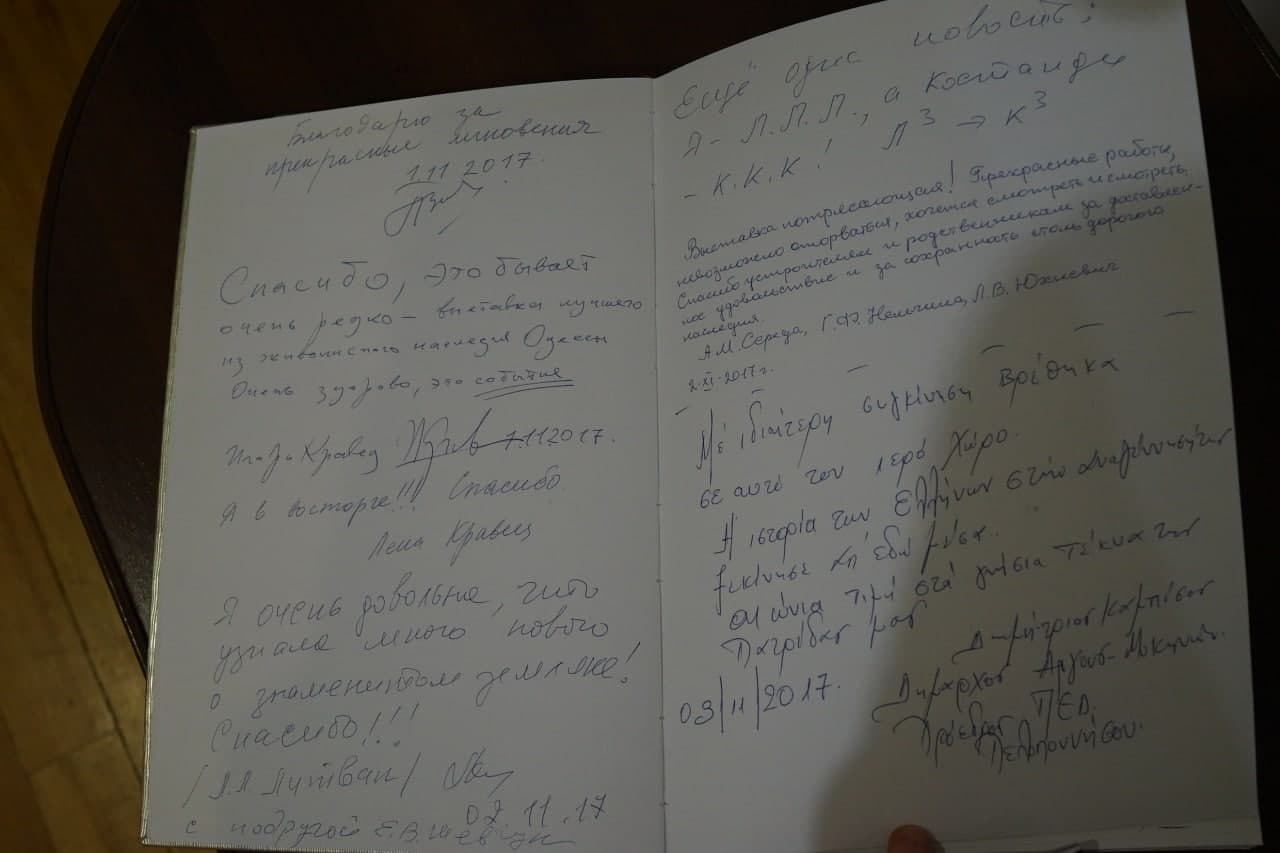 Благодарю за
прекрасные мгновения
1.11.2017.
Спасибо, это бывает
очень редко – выставка лучшего
из живописного наследия Одессы
Очень здорово, это событие
Кравец 1.11.2017.
Я в восторге!!! Спасибо.
Лена Кравец
Я очень довольна, что
узнала много нового
о знаменитом земляке!
Спасибо!!!
/Л.Л. Литван/
02.11.17
с подругой Е.В.
Ещё одна новость:
Я – Л.Л.Л., а Костанди
– К.К.К! Л³ → К³
Выставка потрясающая! Прекрасные работы,
невозможно оторваться, хочется смотреть и смотреть.
Спасибо устроителям и родственникам за доставлен-
ное удовольствие и за сохранность столь дорогого
наследия.
А.М. Середа, Г.Ф. Немчина, Л.В. Юхневич
2.XI-2017г.
Μέ ιδιαίτερη συγκίνηση βρέθηκα
σε αυτό τον ιερό χώρο.
Η ιστορία των Ελλήνων στην
ξεκίνησε απ' εδώ μέσα.
αιώνια τιμή στά γνήσια τέκνα της
Πατρίδας μας
Δημήτριος Καμπόσος
Δήμαρχος Άργους-Μυκηνών.
03/11/2017.
Πρόεδρος ΠΕΔ
Πελοποννήσου.